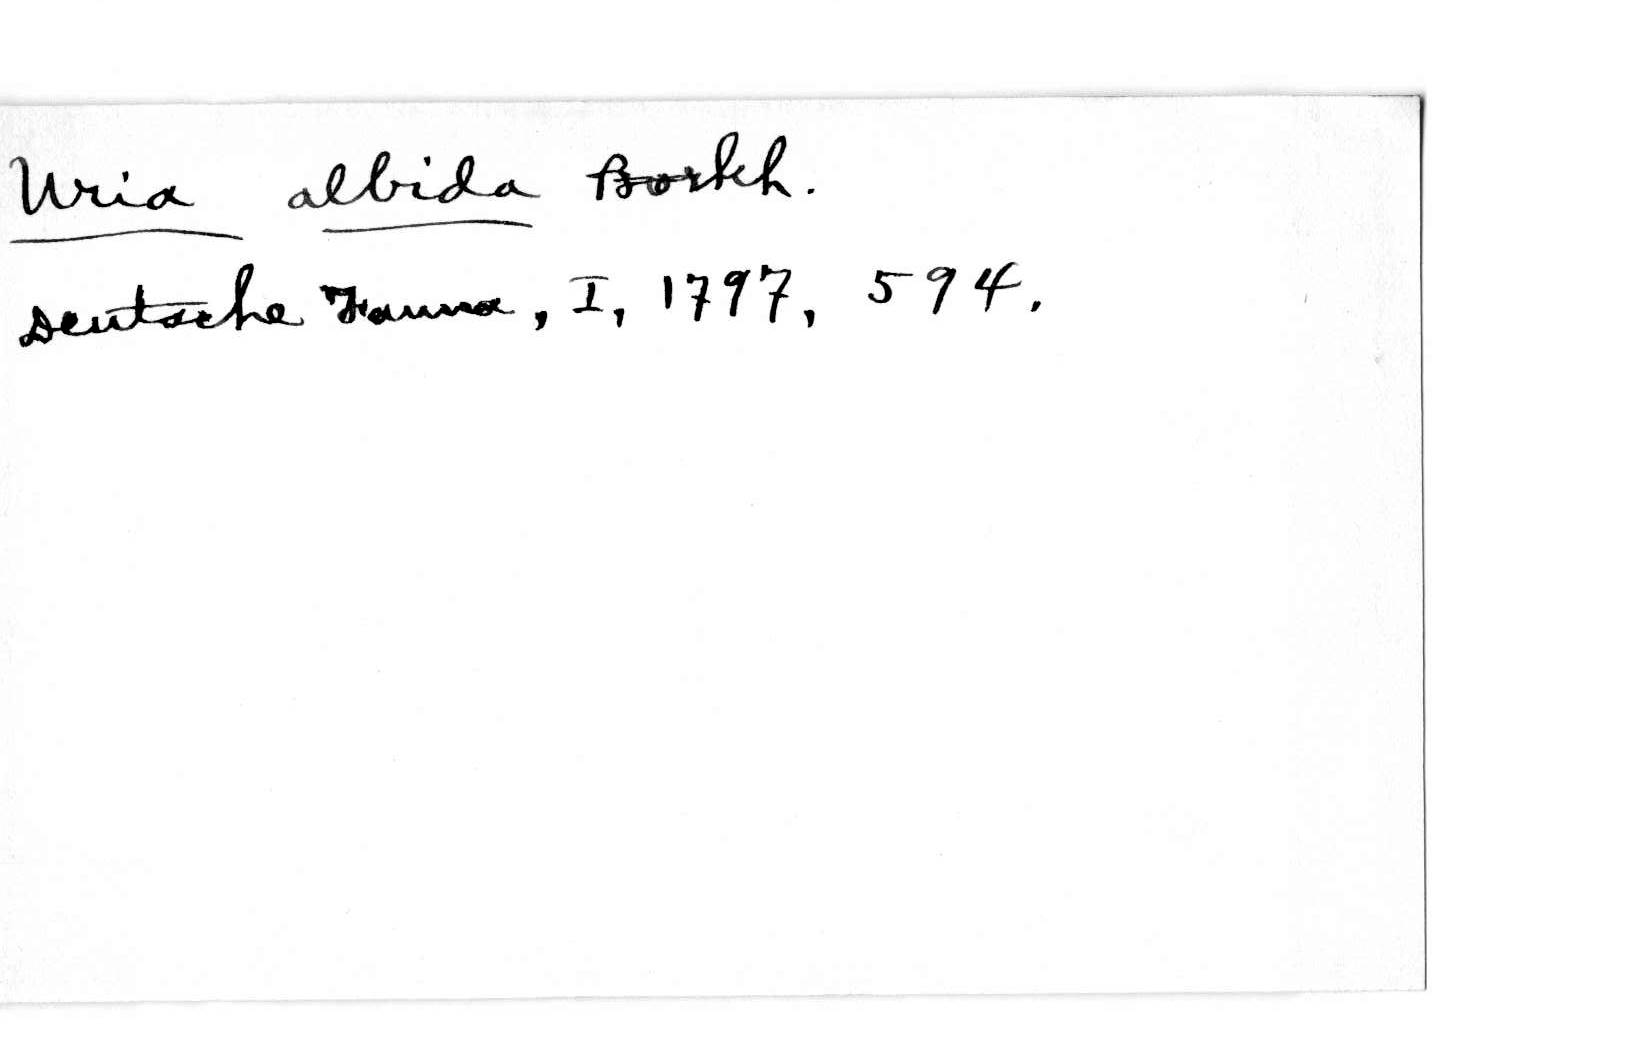 Uria albida Borkh.
Deutsche Fauna, I, 1797, 594.